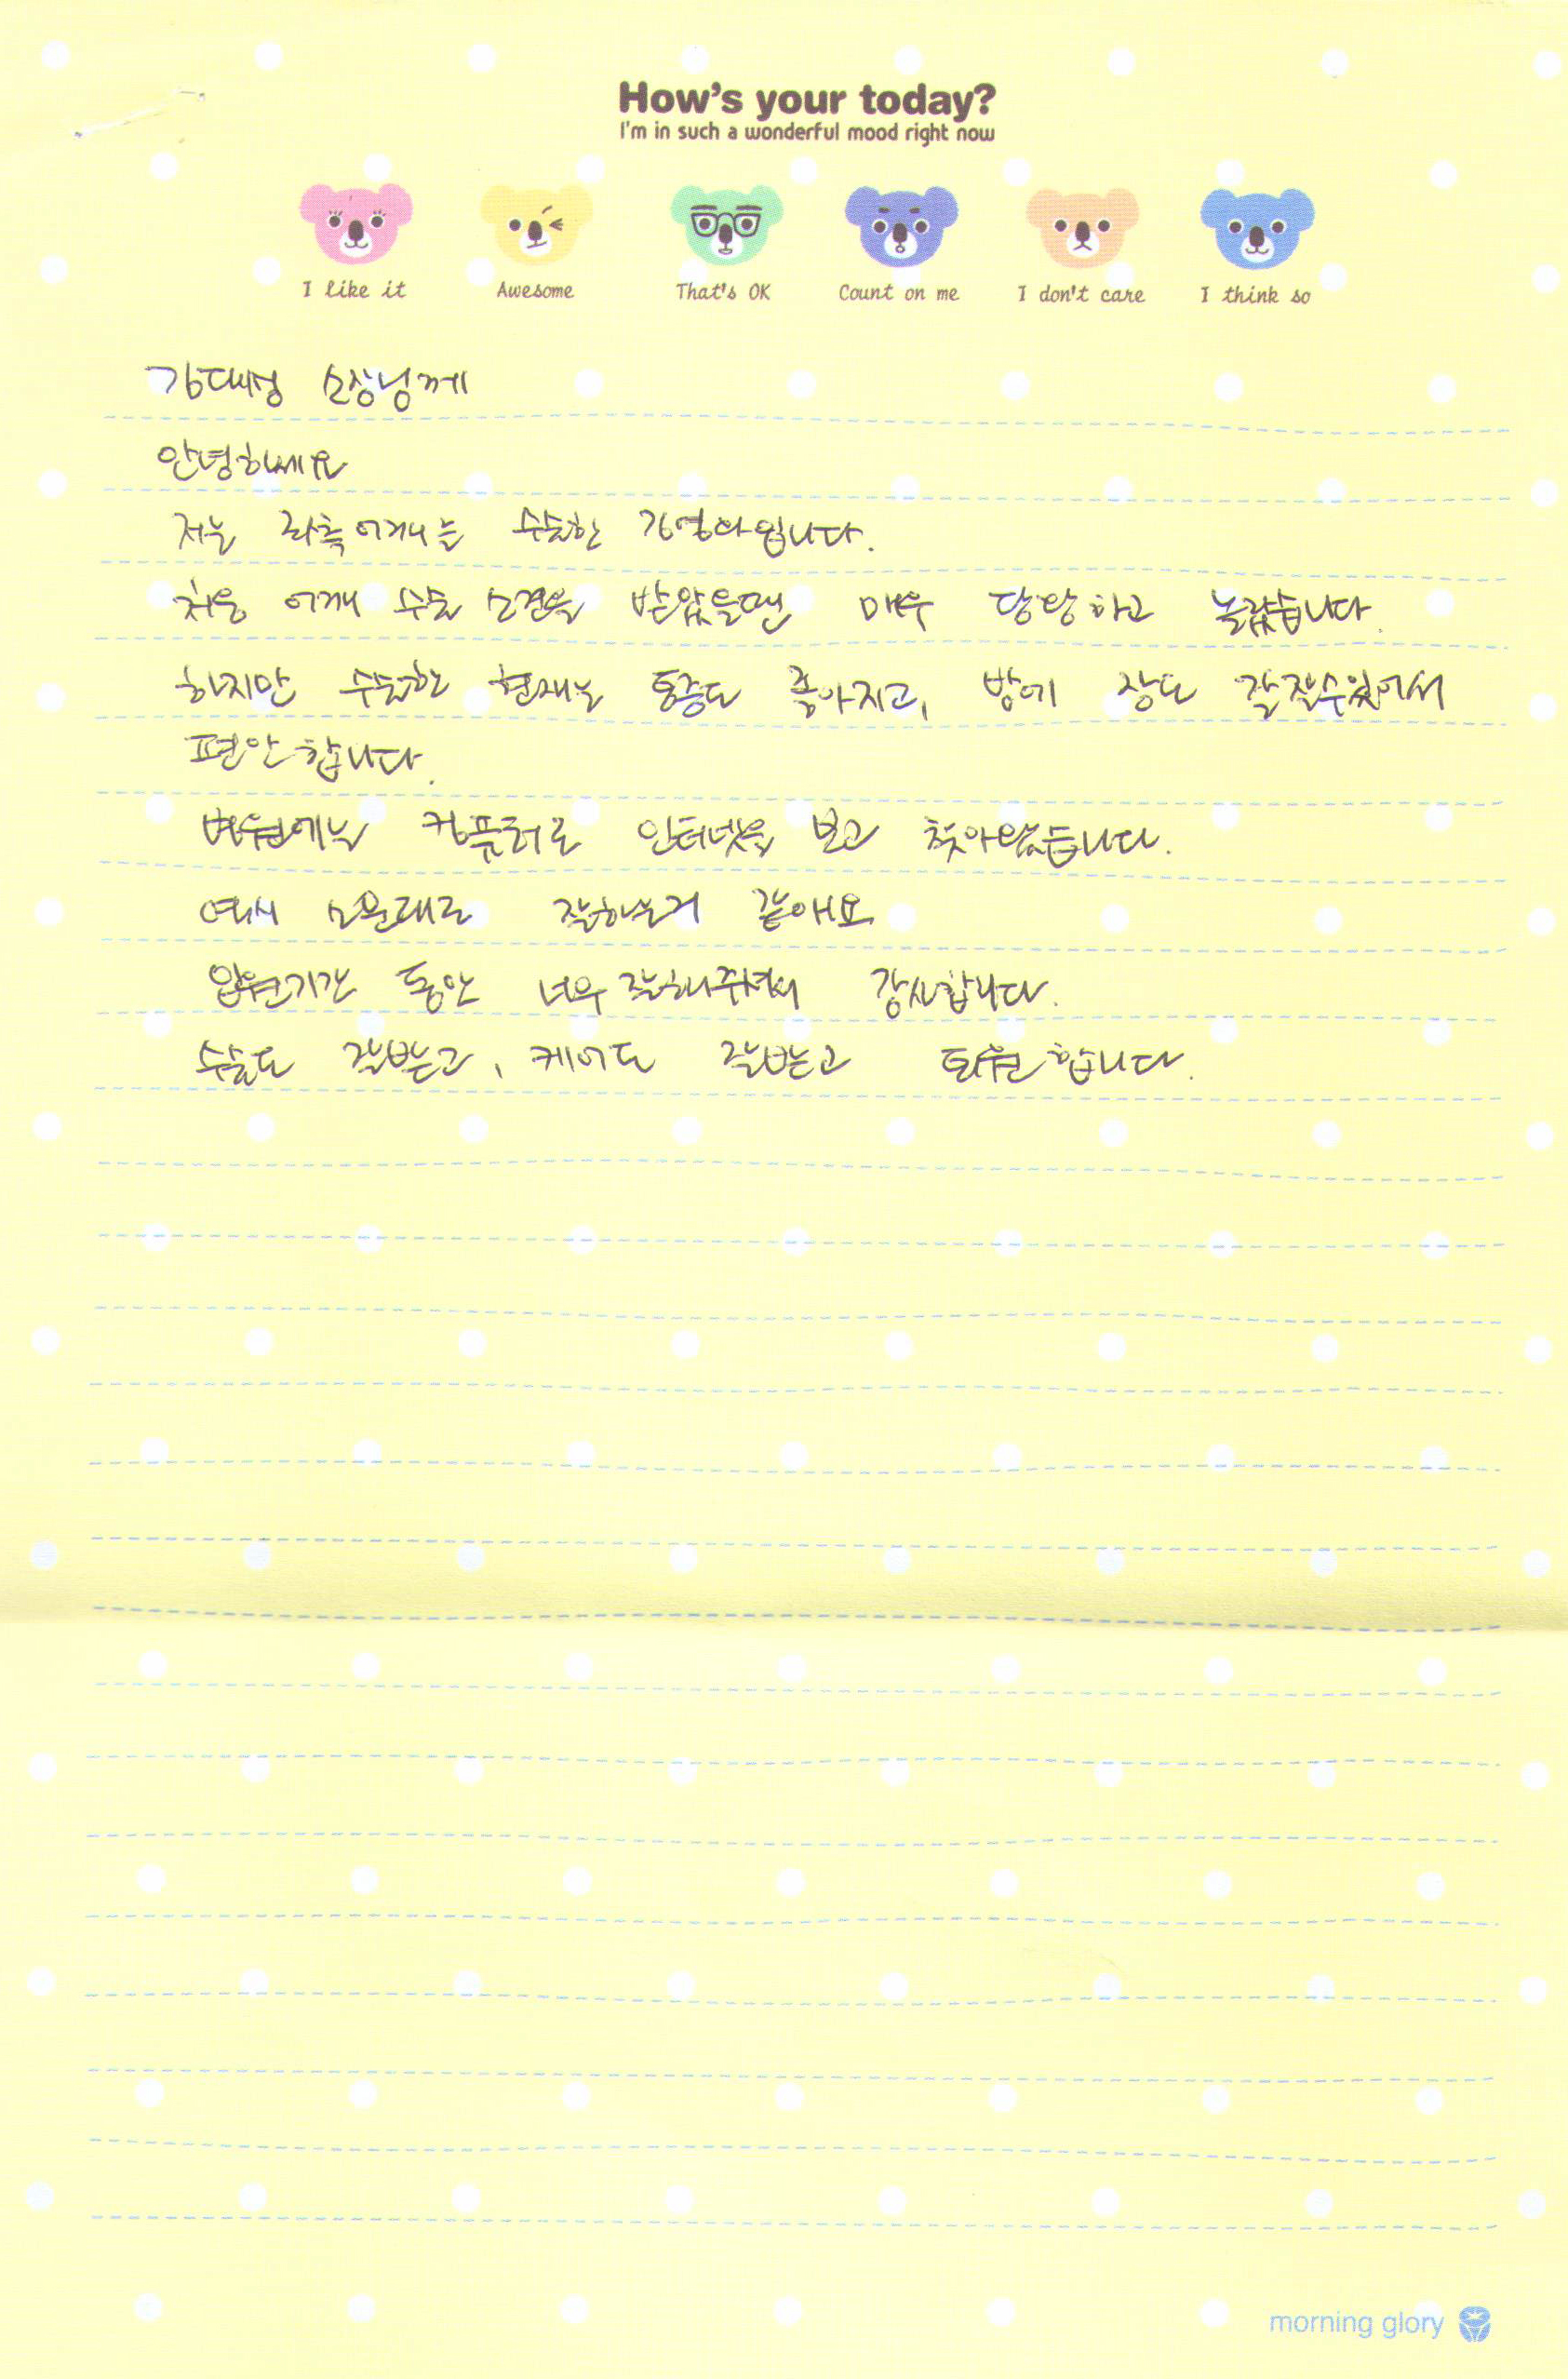 How's your today?
I'm in such a wonderful mood right now
I like it Awesome That's OK Count on me I don't care I think so
김대정 소장님께
안녕하세요
저는 좌측어깨는 수술한 김영아입니다.
처음 어깨 수술 소견을 받았을땐 매우 당황하고 놀랐습니다.
하지만 수술한 현재는 통증도 좋아지고, 밤에 잠도 잘잘수있어서
편안합니다.
병원에는 컴퓨터로 인터넷을 보고 찾아왔습니다.
역시 소문대로 잘하는거 같애요
입원기간 동안 너무 잘해주셔서 감사합니다.
수술도 잘받고, 케어도 잘받고 퇴원합니다.
morning glory